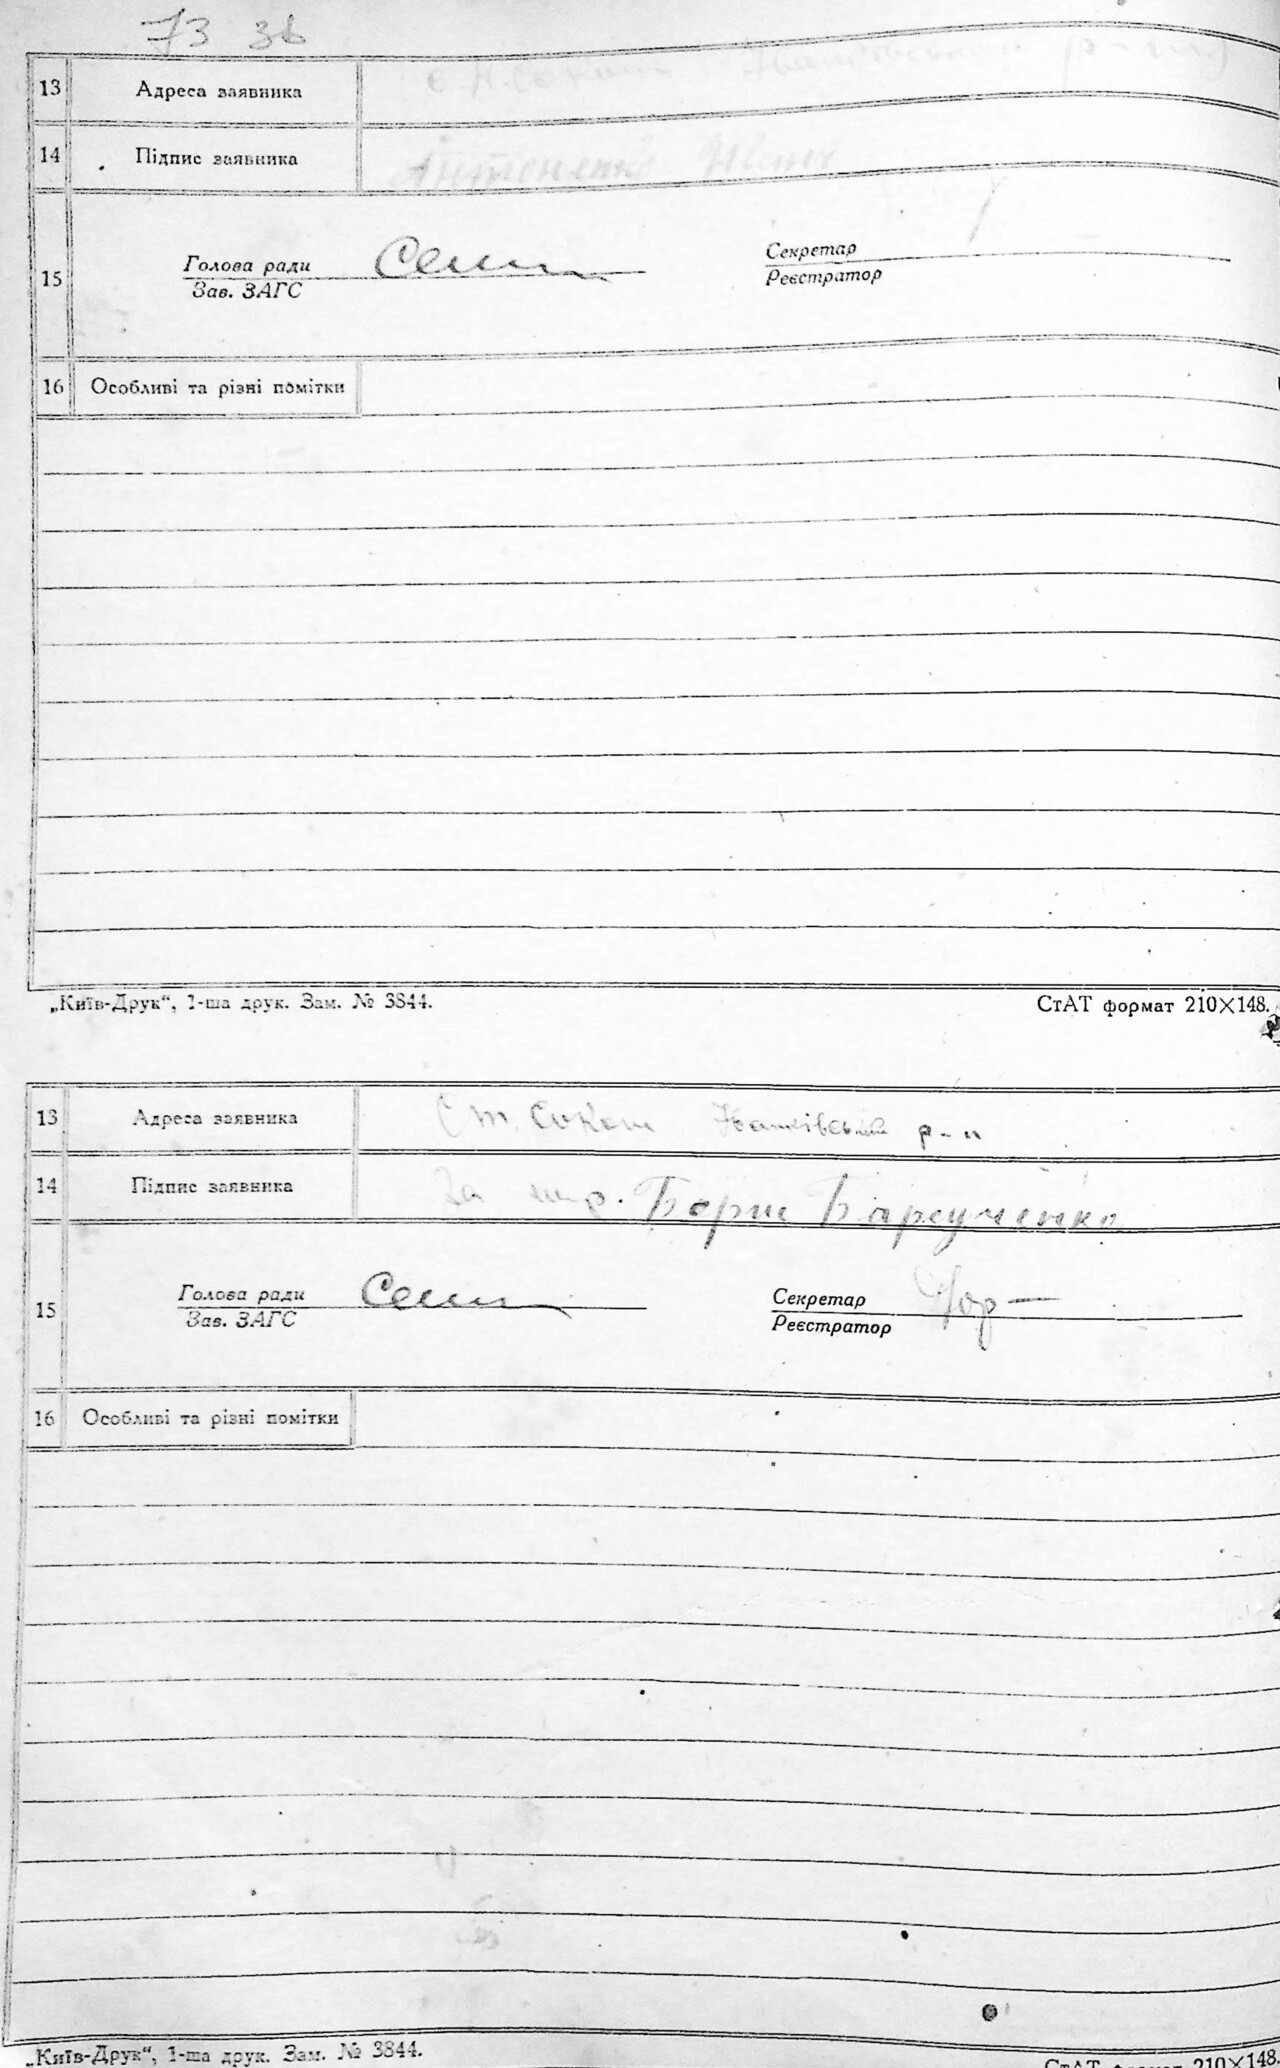 73 зв
13 Адреса заявника с. Н. Сокани р-ну
14 Підпис заявника Антоненко Іван
Голова ради Секретар
15
Зав. ЗАГС Реєстратор
16 Особливі та різні помітки
„Київ-Друк“, 1-ша друк. Зам. № 3844. СтАТ формат 210×148.
13 Адреса заявника Ст. р-н
14 Підпис заявника За Борис Барсученко
Голова ради Секретар
15
Зав. ЗАГС Реєстратор
16 Особливі та різні помітки
„Київ-Друк“, 1-ша друк. Зам. № 3844. СтАТ формат 210×148.